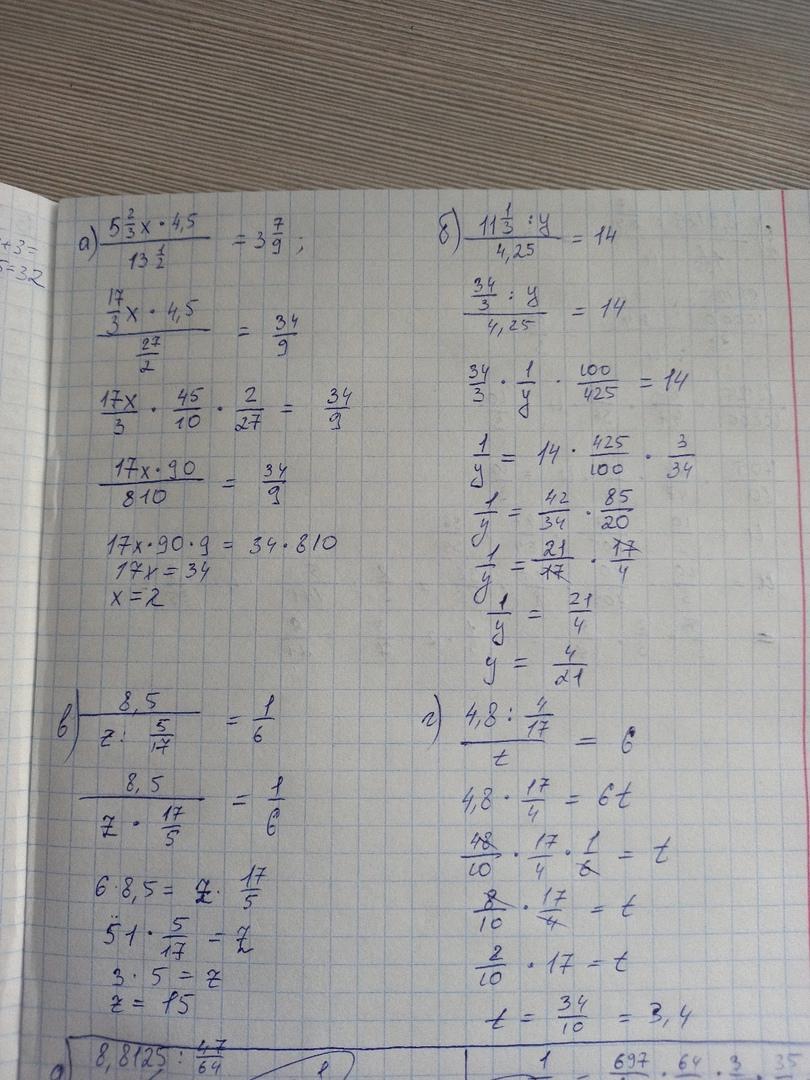 +3=
5=32
а) (5 2/3 x · 4,5)/(13 1/2) = 3 7/9 ;
(17/3 x · 4,5)/(27/2) = 34/9
17x/3 · 45/10 · 2/27 = 34/9
(17x · 90)/810 = 34/9
17x · 90 · 9 = 34 · 810
17x = 34
x = 2
б) (11 1/3 : y)/4,25 = 14
(34/3 : y)/4,25 = 14
34/3 · 1/y · 100/425 = 14
1/y = 14 · 425/100 · 3/34
1/y = 42/34 · 85/20
1/y = 21/17 · 17/4
1/y = 21/4
y = 4/21
в) 8,5/(z : 5/17) = 1/6
8,5/(z · 17/5) = 1/6
6 · 8,5 = z · 17/5
51 · 5/17 = z
3 · 5 = z
z = 15
г) (4,8 : 4/17)/t = 6
4,8 · 17/4 = 6t
48/10 · 17/4 · 1/6 = t
8/10 · 17/4 = t
2/10 · 17 = t
t = 34/10 = 3,4
8,8125 : 47/64
1
697 · 64 · 3 · 35